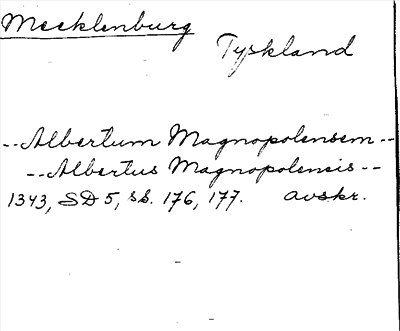 Mecklenburg
Tyskland
-- Albertum Magnopolensem --
-- Albertus Magnopolensis --
1343, SD 5, ss. 176, 177. avskr.